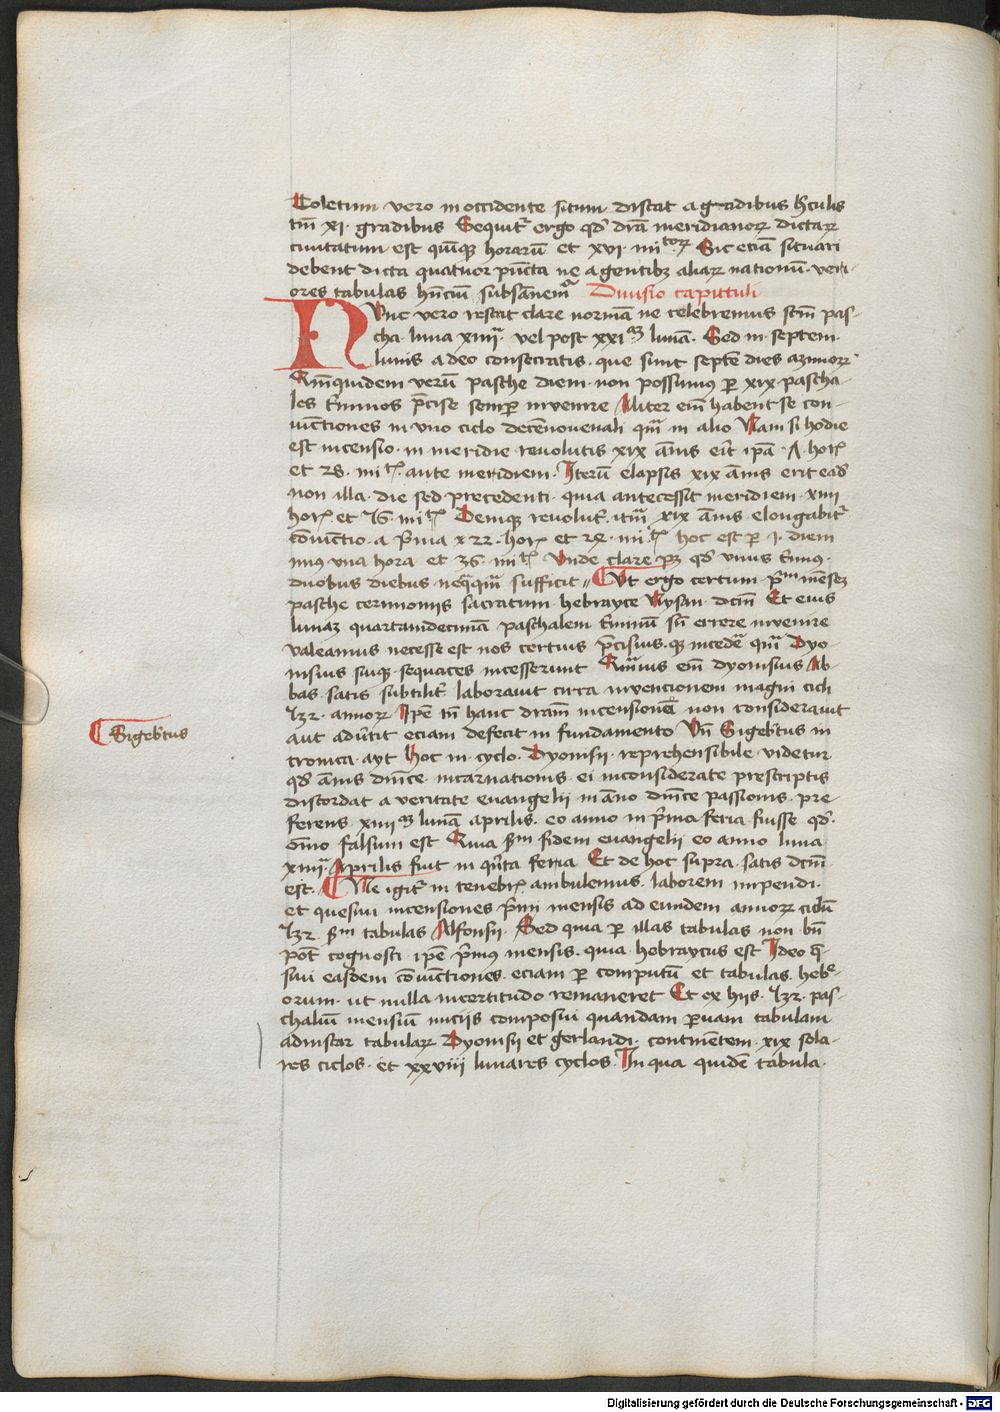 Toletum vero in occidente situm distat a gradibus h̓culis
tm̄ xi· gradibus Sequit᷑ ergo qd̓ dr̄am meridianoꝝ dictaꝝ
ciuitatum est qn̄qꝫ horarū et xvi· mi͞toꝝ Sic etiā situari
debent dicta quatuor pūcta ne a gentibꝫ aliaꝝ nationū· veri-
ores tabulas Diuisio capittuli
Nunc vero restat clare normā ne celebremus scm̄ pas-
cha luna xiiii· vel post xxi lunā· Sed in septem·
lunis a deo consecratis· que sunt septē dies azimoꝝ
Qm̄quidem verū pasche diem· non possumus ꝑ xix· pascha-
les t̓minos p̄cise semꝑ inuenire Aliter em̄ habent se con-
iūctiones in vno ciclo decēnouenali qm̄ in alio Nam si hodie
est incensio· in meridie reuolutis xix ānis erit ipā· Λ hor᷑
et 28· mi͞t· ante meridiem· Iterū elapsis xix ānis erit ead̓
non illa· die sed precedenti· quia antecessit meridiem· xiiii
hor᷑ et 56· mi͞t Demqꝫ reuolut᷑ itm̄ xix ānis elongabit᷑
cōiūctio· a p̓ma hor᷑ et mi͞t hoc est ꝑ 1· diem
mi᷒ vna hora et 36· mi͞t Vnde clare pꝫ qd̓ vnus t̓mius·
duobus diebus neq̄qm̄ sufficit // Vt ergo certum p̓m mēsem
pasche cerimoniis sacratum· hebrayce Nysan· dcm̄ Et eius
lunaꝫ quartamdecimā paschalem t̓minū sn̄ errore inuenire
valeamus necesse est nos certius p̄cisius· qꝫ incede͞ qm̄ Dyo-
nisius suiqꝫ· sequaces incesserunt Qm̄uis em̄ dyonisius Ab-
bas· satis subtilit᷑ laborauit circa inuencionem magni cicli
532· annoꝝ Ipē tn̄ hanc dr̄am incensionū non considerauit
aut adu̓tit eciam defecit in fundamento Vn̄ Sigeb̓tus in
cronica· ayt Hoc in· cyclo· Dyonisii· reprehensibile videtur
qd̓ ānis dn̄ice· incarnationis· ei inconsiderate prescriptis
discordat a veritate euangelii in āno dn̄ice passionis· pre-
ferens· xiiii lunā aprilis· eo anno in p̓ma feria fuisse qd̓·
om̄o falsum est Quia s̓m fidem euangelii eo anno luna
xiiii· Aprilis fuit in q̓nta feria Et de hoc supra· satis dcm̄
est· Ne igit᷑ in tenebr᷑ ambulemus· laborem impendi·
et quesiui incensiones p̓mi mensis ad eundem annoꝝ ciclū
532· s̓m tabulas Alfonsii· Sed quia ꝑ illas tabulas non bn̄
pōt cognosci· ipē p̓mus mensis· quia hebraycus est Ideo q̄-
siui easdem cōiūctiones· eciam ꝑ computū et tabulas· heb̓e-
orum· ut nulla incertitudo remaneret Et ex hiis· 532· pas-
chaliū mensiū iniciis composui quandam ꝑuam tabulam
adinstar tabulaꝝ Dyonisii et gerlandi· continētem· xix sola-
res ciclos· et xxviii lunares cyclos· In qua quidē tabula·
Sigeb̓tus
Digitalisierung gefördert durch die Deutsche Forschungsgemeinschaft - DFG